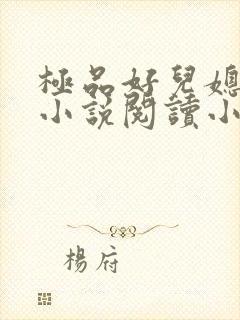 極品好兒媳
小說閱讀小
楊府